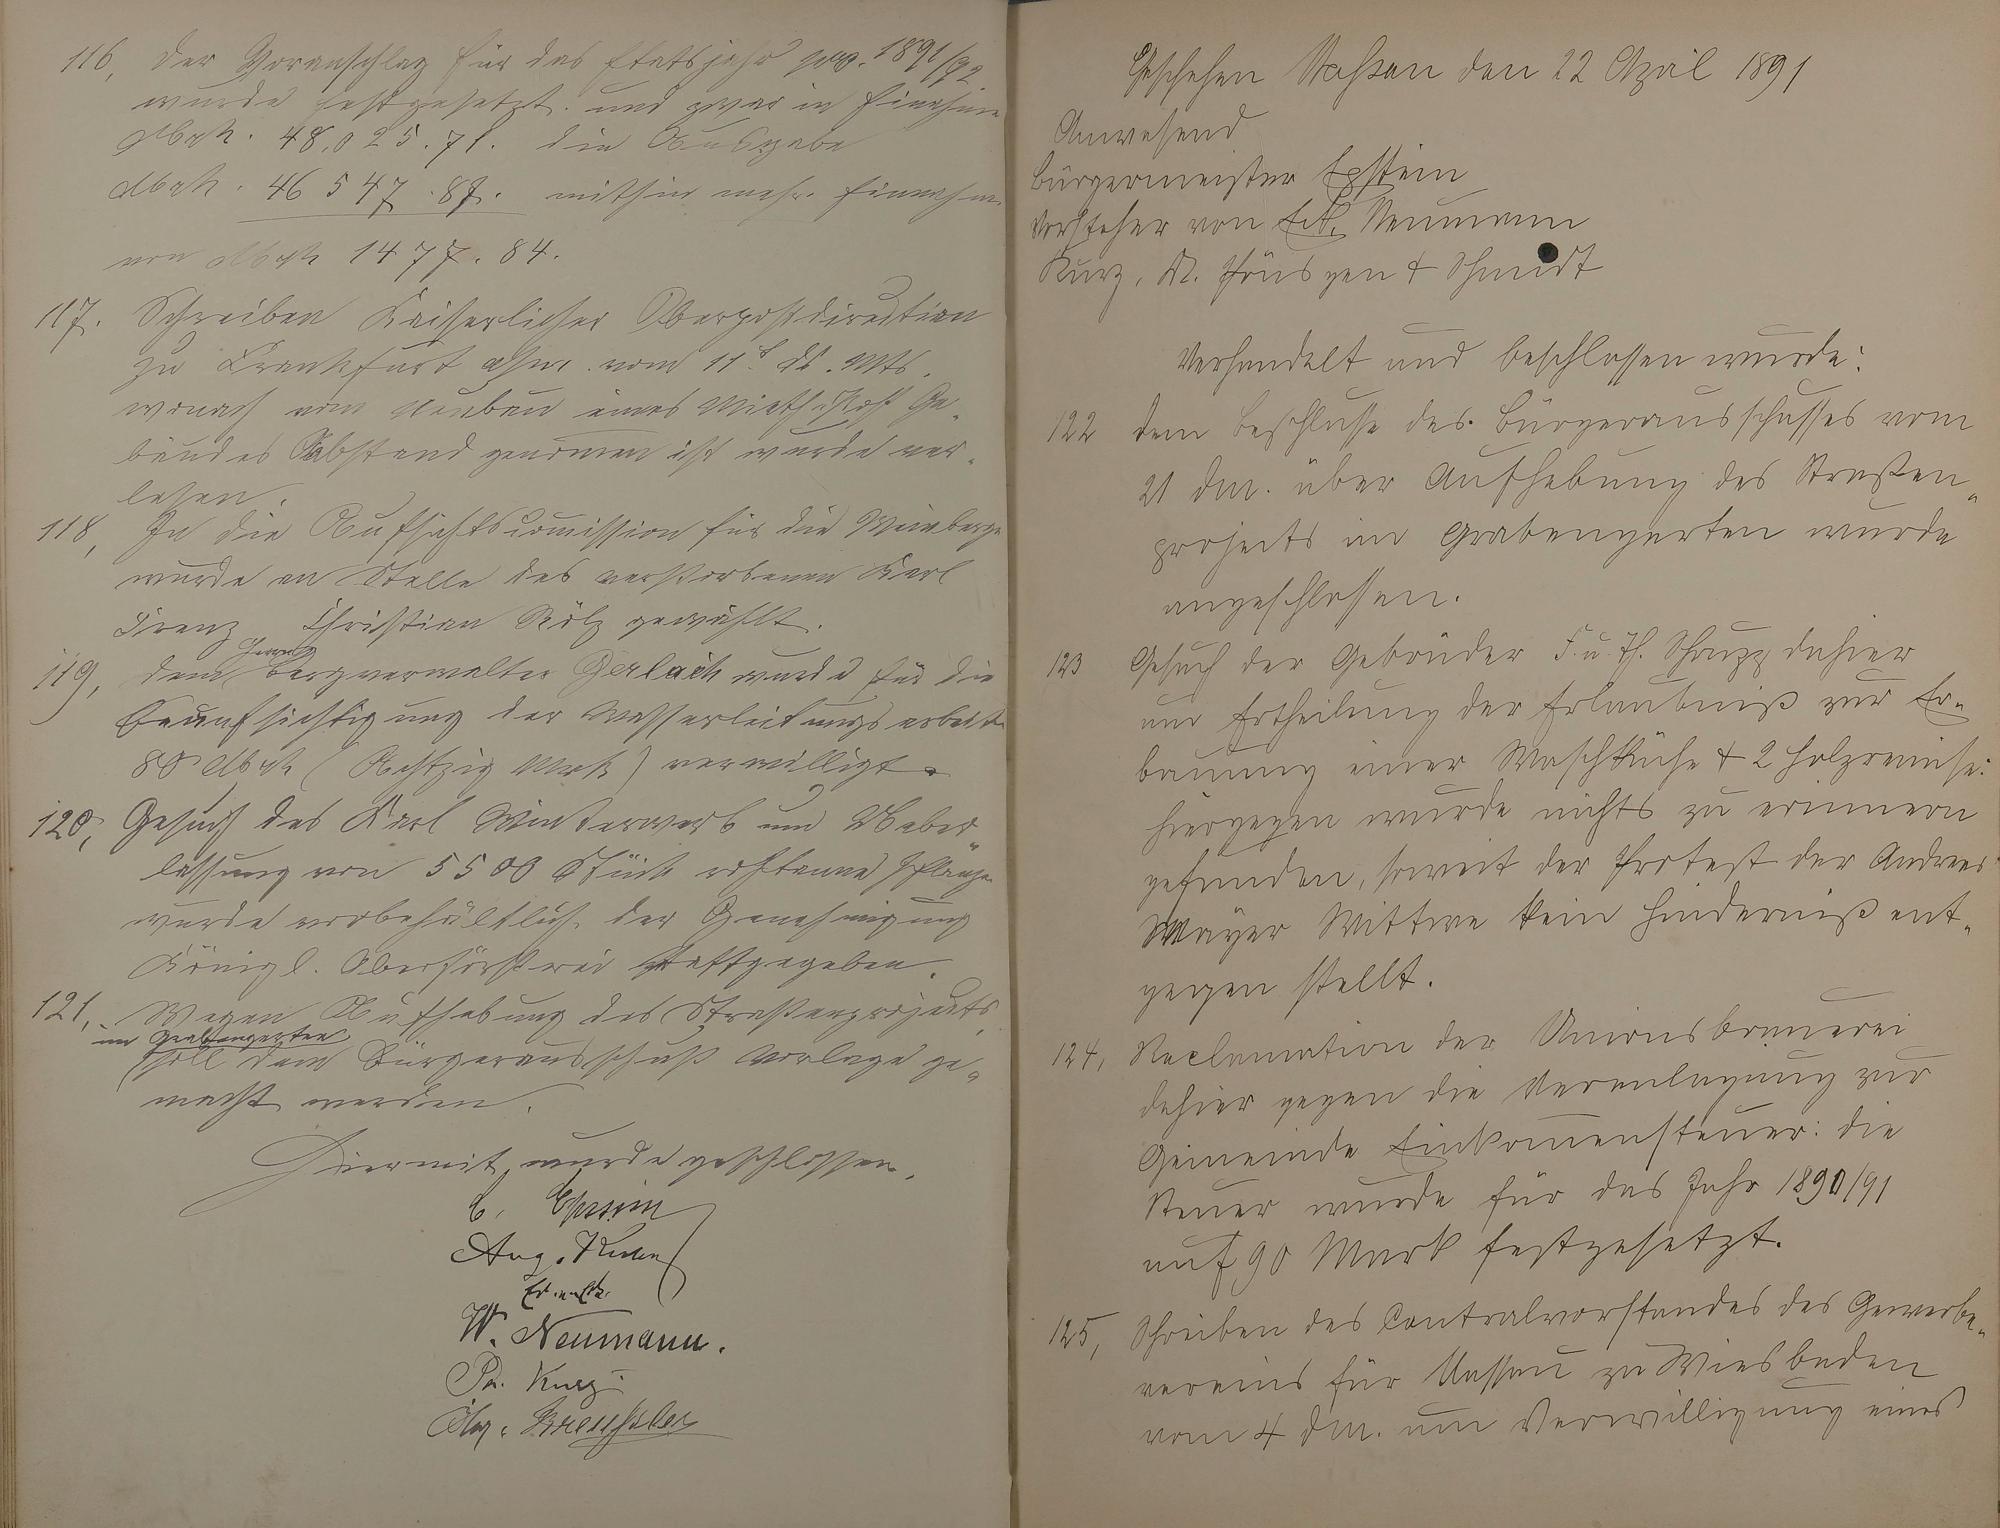 116, Der Voranschlag für das Etatsjahr pro. 1891/92
wurde festgesetzt. und zwar in Einnahme
Mark. 48,025.71. die Ausgabe
Mark. 46 547.87. mithin mehr. Einnahme
von Mark 1477.84.
117. Schreiben Kaiserlicher Oberpostdirection
zu Frankfurt a/m. vom 11t ds. Mts.
wonach vom Neubau eines Ge-
bäudes Abstand genommen ist wurde ver-
lesen.
118, In die Aufsichtscommission für die Weinberge
wurde an Stelle des verstorbenen Karl
Christian gewählt.
119, dem Herrn Bergverwalter Gerlach wurde für die
Beaufsichtigung der Wasserleitungsarbeiten
80 Mark (Achtzig Mark) verwilligt.
120, Gesuch des Karl Winterwerb um Ueber-
lassung von 5500 Stück Pflanzen
wurde vorbehaltlich der Genehmigung
Königl. Oberförsterei stattgegeben.
121, Wegen Aufhebung des Straßenprojects
im Grabengarten
soll dem Bürgerausschuß Vorlage ge-
macht werden.
Hiermit wurde geschlossen.
C. Epstein
Aug.
W. Neumann.
Ph. Kurz
Geschehen Nassau den 22 April 1891
Anwesend
Bürgermeister Epstein
Vorsteher von Eck, Neumann
Kurz, & Schmidt
Verhandelt und beschlossen wurde:
122 dem Beschlusse des Bürgerausschusses vom
21 dM. über Aufhebung des Straßen-
projects im Grabengarten wurde
angeschlossen.
123 Gesuch der Gebrüder F. u. Th. Schupp dahier
um Ertheilung der Erlaubniß zur Er-
bauung einer Waschküche & 2 Holzremise:
hiergegen wurde nichts zu erinnern
gefunden, soweit der Protest der Andreas
Mayer Wittwe kein Hinderniß ent-
gegen stellt.
124, Reclamation der Unionsbrauerei
dahier gegen die Veranlagung zur
Gemeinde Einkommensteuer: die
Steuer wurde für das Jahr 1890/91
auf 90 Mark festgesetzt.
125, Schreiben des Centralvorstandes des Gewerbe-
vereins für Nassau zu Wiesbaden
vom 4 dM. um Verwilligung eines